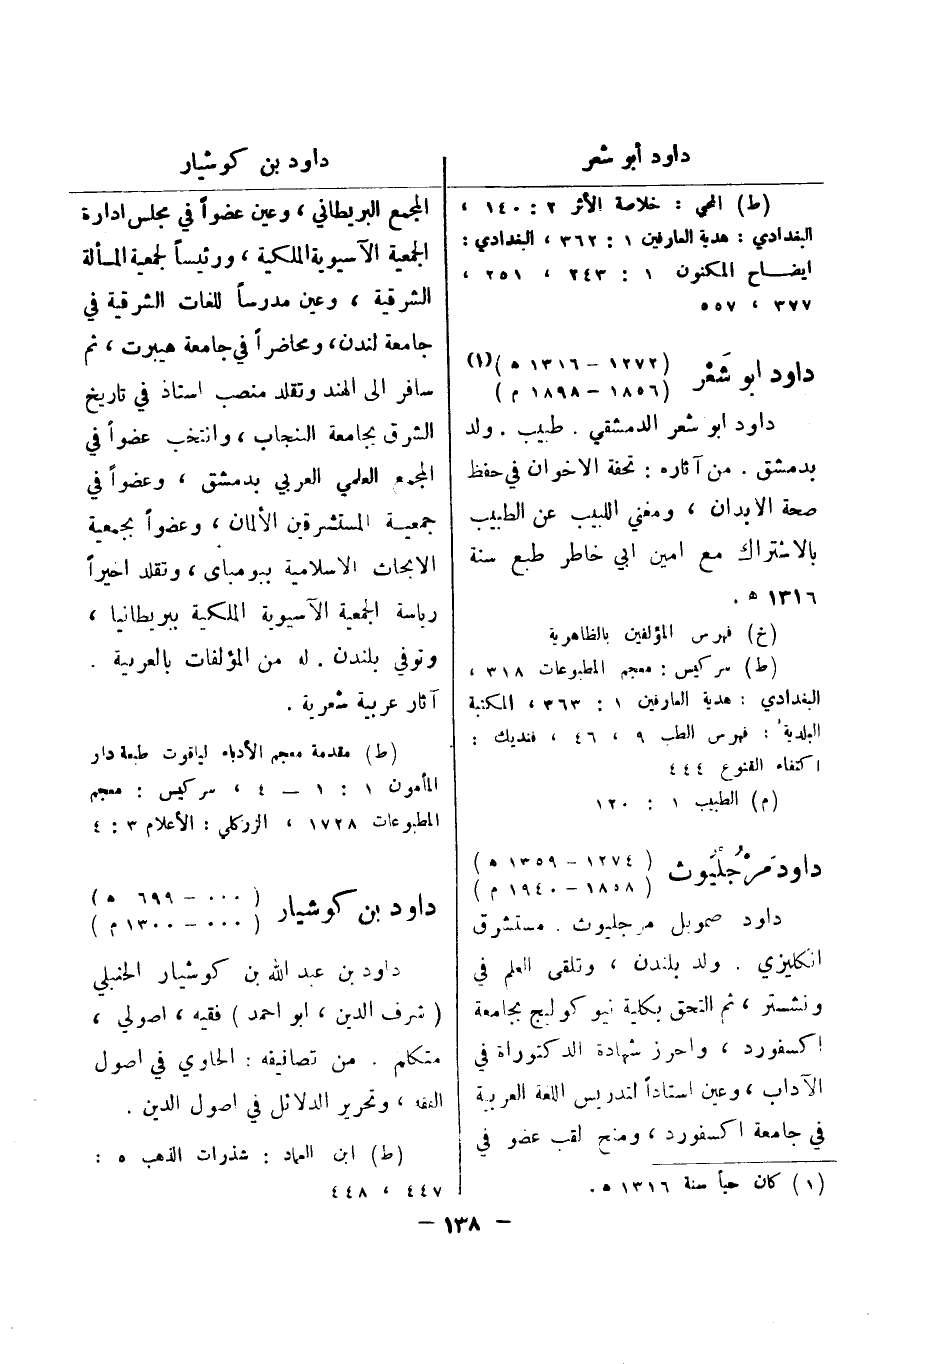 داود أبو شعر
(ط) المحبي : خلاصة الأثر ٢ : ١٤٠ ،
البغدادي : هدية العارفين ١ : ٣٦٢ ، البغدادي :
ايضاح المكنون ١ : ٢٤٣ ، ٢٥١ ،
٣٧٧ ، ٥٥٧
داود ابو شَعْر (١٢٧٢ - ١٣١٦ ه) (١)
(١٨٥٦ - ١٨٩٨ م)
داود ابو شعر الدمشقي . طبيب . ولد
بدمشق . من آثاره : تحفة الاخوان في حفظ
صحة الابدان ، ومغني اللبيب عن الطبيب
بالاشتراك مع امين ابي خاطر طبع سنة
١٣١٦ ه .
(خ) فهرس المؤلفين بالظاهرية
(ط) سركيس : معجم المطبوعات ٣١٨ ،
البغدادي : هدية العارفين ١ : ٣٦٣ ، المكتبة
البلدية : فهرس الطب ٩ ، ٤٦ ، فنديك :
اكتفاء القنوع ٤٤٤
(م) الطبيب ١ : ١٢٠
داود مَرْجُلَيُوث (١٢٧٤ - ١٣٥٩ ه)
(١٨٥٨ - ١٩٤٠ م)
داود صموبل مرجليوث . مستشرق
انكليزي . ولد بلندن ، وتلقى العلم في
ونشستر ، ثم التحق بكلية نيو كولبج بجامعة
اكسفورد ، واحرز شهادة الدكتوراة في
الآداب ، وعين استاذاً لتدريس اللغة العربية
في جامعة اكسفورد ، ومنح لقب عضو في
(١) كان حياً سنة ١٣١٦ ه .
داود بن كوشيار
المجمع البريطاني ، وعين عضواً في مجلس ادارة
الجمعية الآسيوية الملكية ، ورئيساً لجمعية المسألة
الشرقية ، وعين مدرساً للغات الشرقية في
جامعة لندن ، ومحاضراً في جامعة هيبرت ، ثم
سافر الى الهند وتقلد منصب استاذ في تاريخ
الشرق بجامعة البنجاب ، وانتخب عضواً في
المجمع العلمي العربي بدمشق ، وعضواً في
جمعية المستشرقين الألمان ، وعضواً بجمعية
الابحاث الاسلامية ببومباى ، وتقلد اخيراً
رياسة الجمعية الآسيوية الملكية ببريطانيا ،
وتوفي بلندن . له من المؤلفات بالعربية .
آثار عربية شعرية .
(ط) مقدمة معجم الأدباء لياقوت طبعة دار
المأمون ١ : ١ - ٤ ، سركيس : معجم
المطبوعات ١٧٢٨ ، الزركلي : الأعلام ٣ : ٤
داود بن كوشيار (٠٠٠ - ٦٩٩ ه)
(٠٠٠ - ١٣٠٠ م)
داود بن عبد الله بن كوشيار الحنبلي
( شرف الدين ، ابو احمد ) فقيه ، اصولي ،
متكلم . من تصانيفه : الحاوي في اصول
الفقه ، وتحرير الدلائل في اصول الدين .
(ط) ابن العماد : شذرات الذهب ٥ :
٤٤٧ ، ٤٤٨
- ١٣٨ -